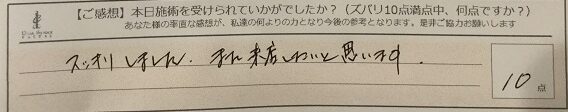 【ご感想】本日施術を受けられていかがでしたか？（ズバリ10点満点中、何点ですか？）
あなた様の率直な感想が、私達の何よりの力となり今後の参考となります。是非ご協力お願いします
スッキリしました。また来店したいと思います。
10点